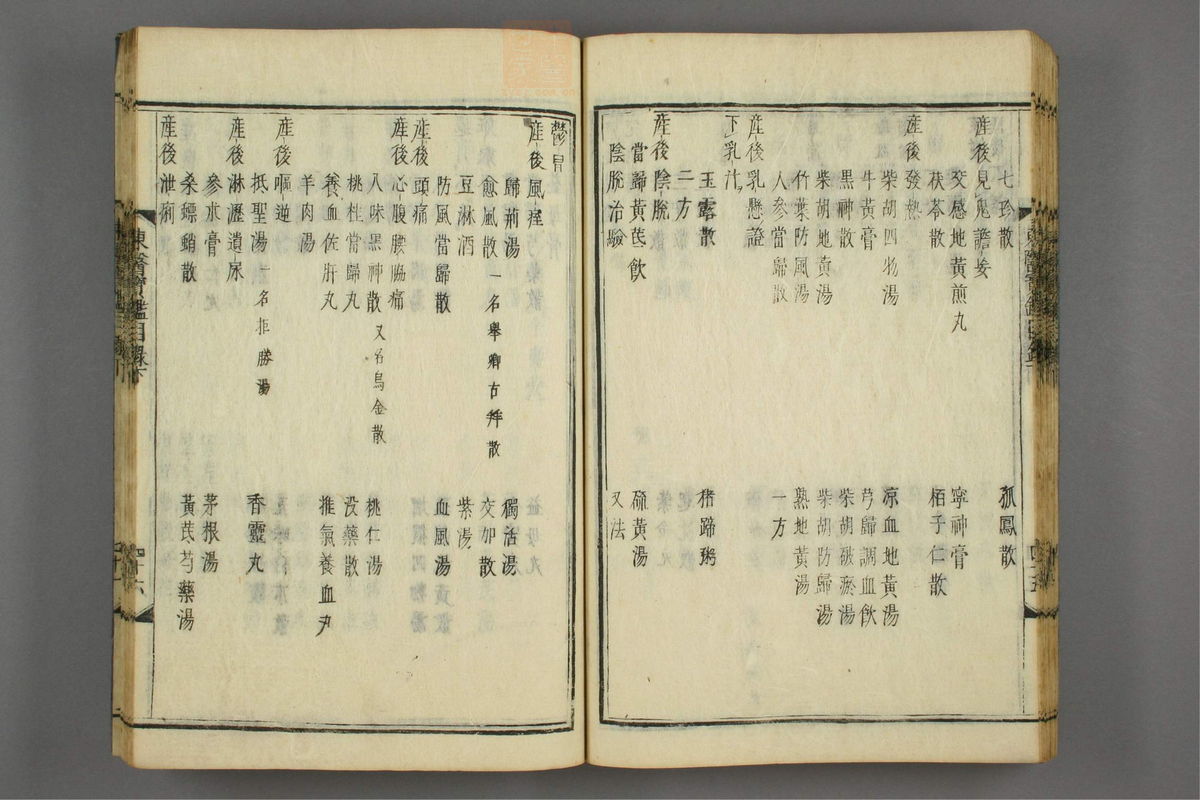 七珍散 狐鳳散
産後見鬼譫妄
交感地黃煎丸 寧神膏
茯苓散 栢子仁散
産後發熱
柴胡四物湯 凉血地黃湯
牛黃膏 芎歸調血飮
黑神散 柴胡破瘀湯
柴胡地黃湯 柴胡防歸湯
竹葉防風湯 熟地黃湯
人參當歸散 一方
産後乳懸證
下乳汁
玉露散 猪蹄粥
二方
産後陰脫
當歸黃芪飮 硫黃湯
陰脫治驗 又法
鬱冒
産後風痓
歸荊湯 獨活湯
愈風散一名擧卿古拜散 交加散
豆淋酒 紫湯
防風當歸散 血風湯
産後頭痛
産後心腹腰脇痛
八味黑神散又名烏金散 桃仁湯
桃桂當歸丸 没藥散
養血佐肝丸 推氣養血丸
羊肉湯
産後嘔逆
抵聖湯一名拒勝湯 香靈丸
産後淋瀝遺尿
參朮膏 茅根湯
桑螵蛸散 黃芪芍藥湯
産後泄痢
東醫寶鑑目錄下
四十六